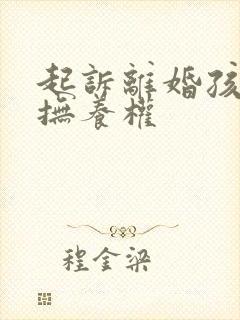 起訴離婚孩
撫養權
程金梁